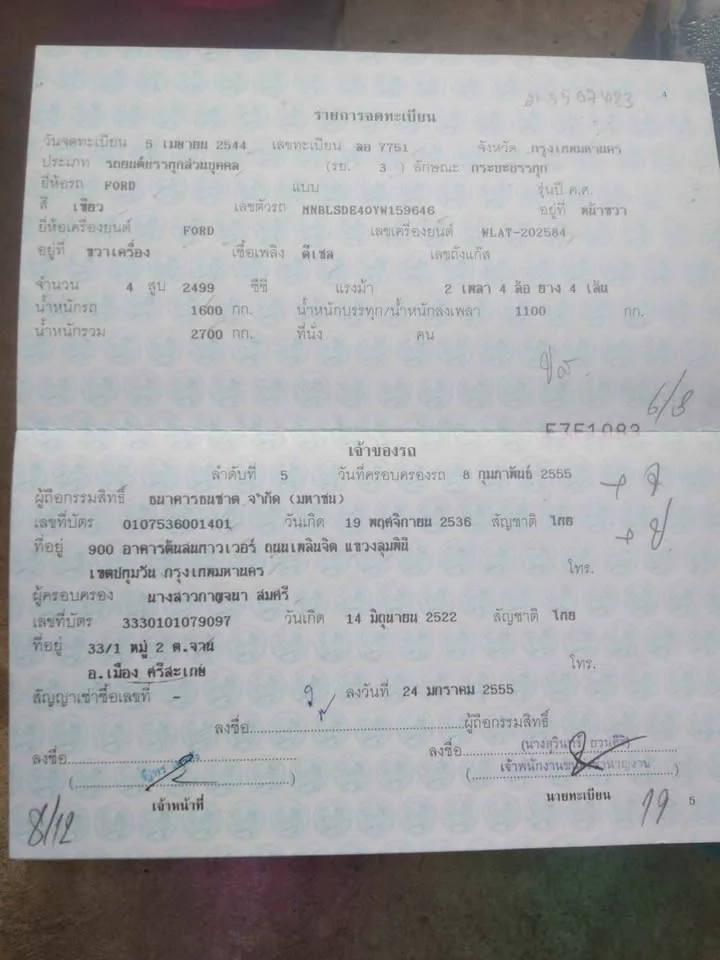 4
รายการจดทะเบียน
วันจดทะเบียน 5 เมษายน 2544 เลขทะเบียน ลอ 7751 จังหวัด กรุงเทพมหานคร
ประเภท รถยนต์บรรทุกส่วนบุคคล (รย. 3 ) ลักษณะ กระบะบรรทุก
ยี่ห้อรถ FORD แบบ รุ่นปี ค.ศ.
สี เขียว เลขตัวรถ MNBLSDE40YW159646 อยู่ที่ หน้าขวา
ยี่ห้อเครื่องยนต์ FORD เลขเครื่องยนต์ WLAT-202584
อยู่ที่ ขวาเครื่อง เชื้อเพลิง ดีเซล เลขถังแก๊ส
จำนวน 4 สูบ 2499 ซีซี แรงม้า 2 เพลา 4 ล้อ ยาง 4 เส้น
น้ำหนักรถ 1600 กก. น้ำหนักบรรทุก/น้ำหนักลงเพลา 1100 กก.
น้ำหนักรวม 2700 กก. ที่นั่ง คน
6/8
เจ้าของรถ
ลำดับที่ 5 วันที่ครอบครองรถ 8 กุมภาพันธ์ 2555
ผู้ถือกรรมสิทธิ์ ธนาคารธนชาต จำกัด (มหาชน)
เลขที่บัตร 0107536001401 วันเกิด 19 พฤศจิกายน 2536 สัญชาติ ไทย
ที่อยู่ 900 อาคารต้นสนทาวเวอร์ ถนนเพลินจิต แขวงลุมพินี
เขตปทุมวัน กรุงเทพมหานคร โทร.
ผู้ครอบครอง นางสาวกาญจนา สมศรี
เลขที่บัตร 3330101079097 วันเกิด 14 มิถุนายน 2522 สัญชาติ ไทย
ที่อยู่ 33/1 หมู่ 2 ต.จาน
อ.เมือง ศรีสะเกษ โทร.
สัญญาเช่าซื้อเลขที่ - ลงวันที่ 24 มกราคม 2555
ลงชื่อ ผู้ถือกรรมสิทธิ์
ลงชื่อ ลงชื่อ
เจ้าหน้าที่ นายทะเบียน
8/12 19 5